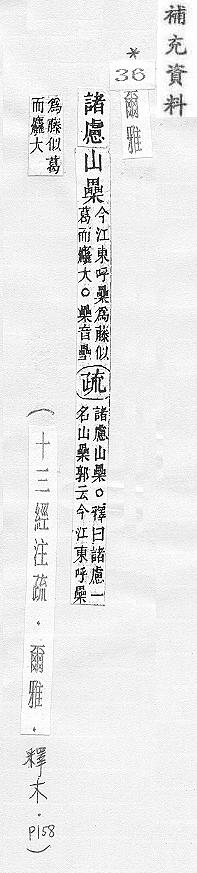 補充資料
*
36
爾雅
諸慮山櫐今江東呼櫐為藤似
葛而麤大。櫐音壘
疏
諸慮山櫐。釋曰諸慮一
名山櫐郭云今江東呼櫐
為藤似葛
而麤大
(十三經注疏.爾雅.釋木.P158)